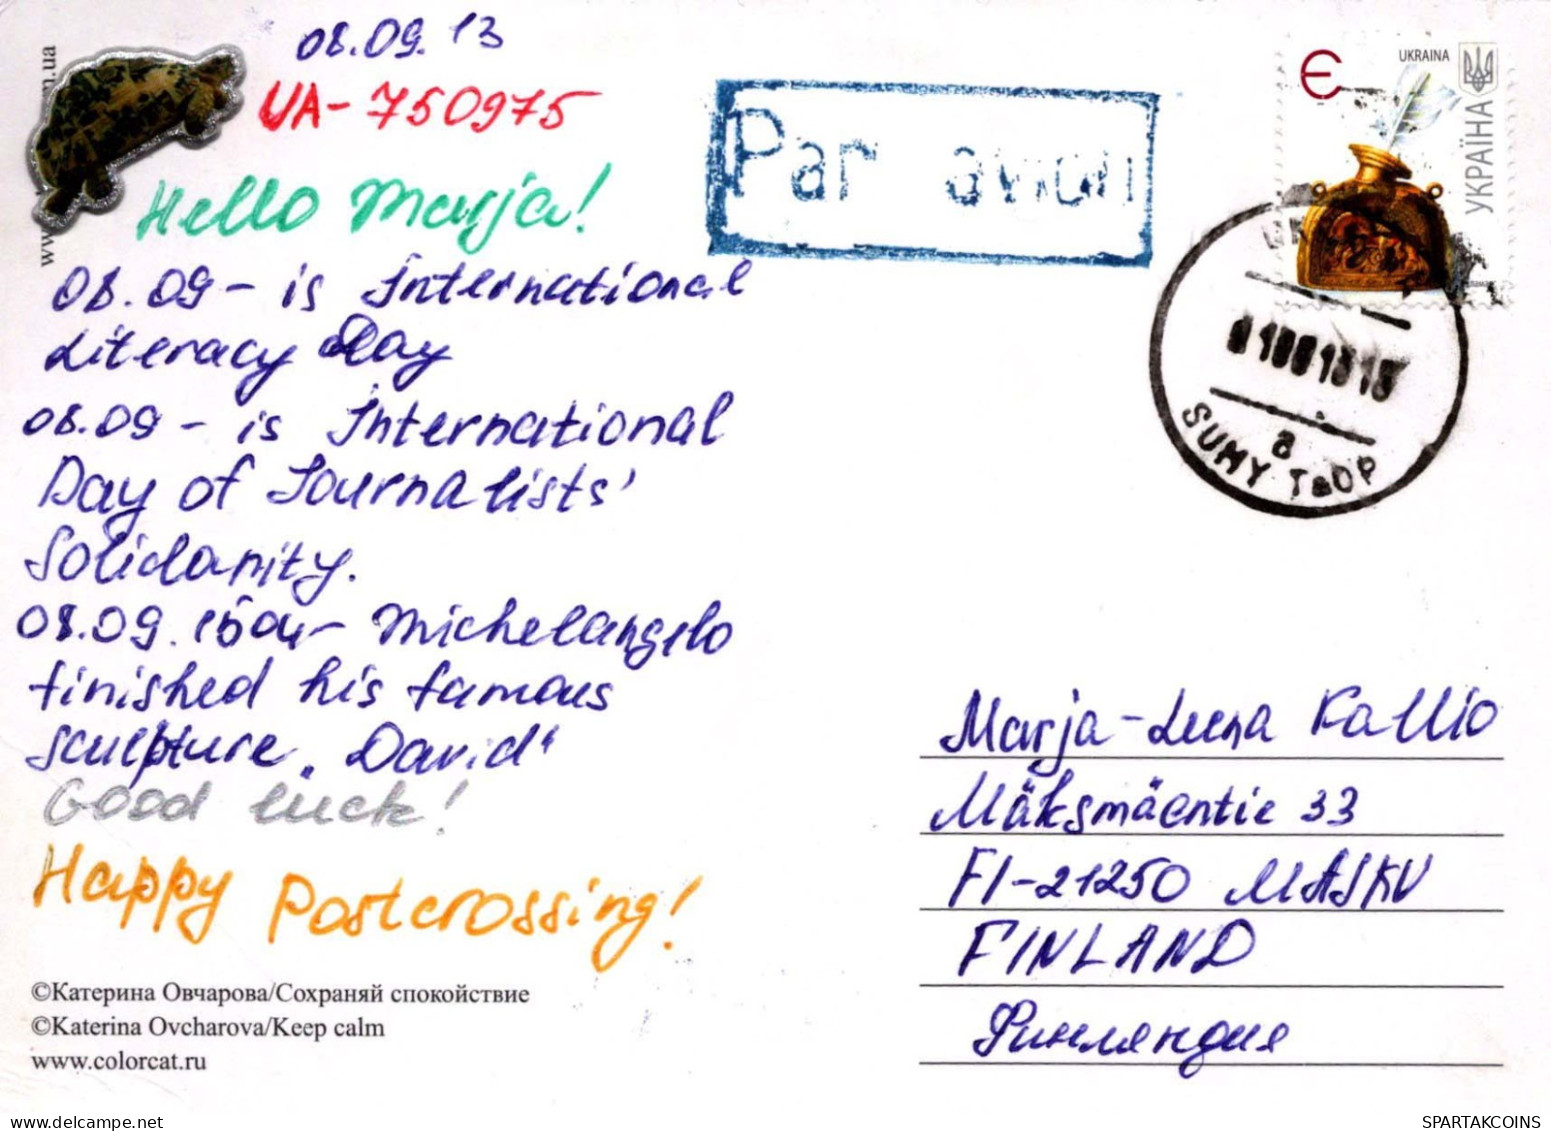 08.09.13
UA-750975
Hello Marja!
08.09 - is International
Literacy Day
08.09 - is International
Day of Journalists'
Solidarity.
08.09.1504 - Michelangelo
finished his famous
sculpture „David“
Good luck!
Happy Postcrossing!
©Катерина Овчарова/Сохраняй спокойствие
©Katerina Ovcharova/Keep calm
www.colorcat.ru
Par avion
Є
UKRAINA
УКРАЇНА
SUMY
a
Marja-Leena Kallio
Mäksmäentie 33
FI-21250 MASKU
FINLAND
Финляндия
SPARTAKCOINS